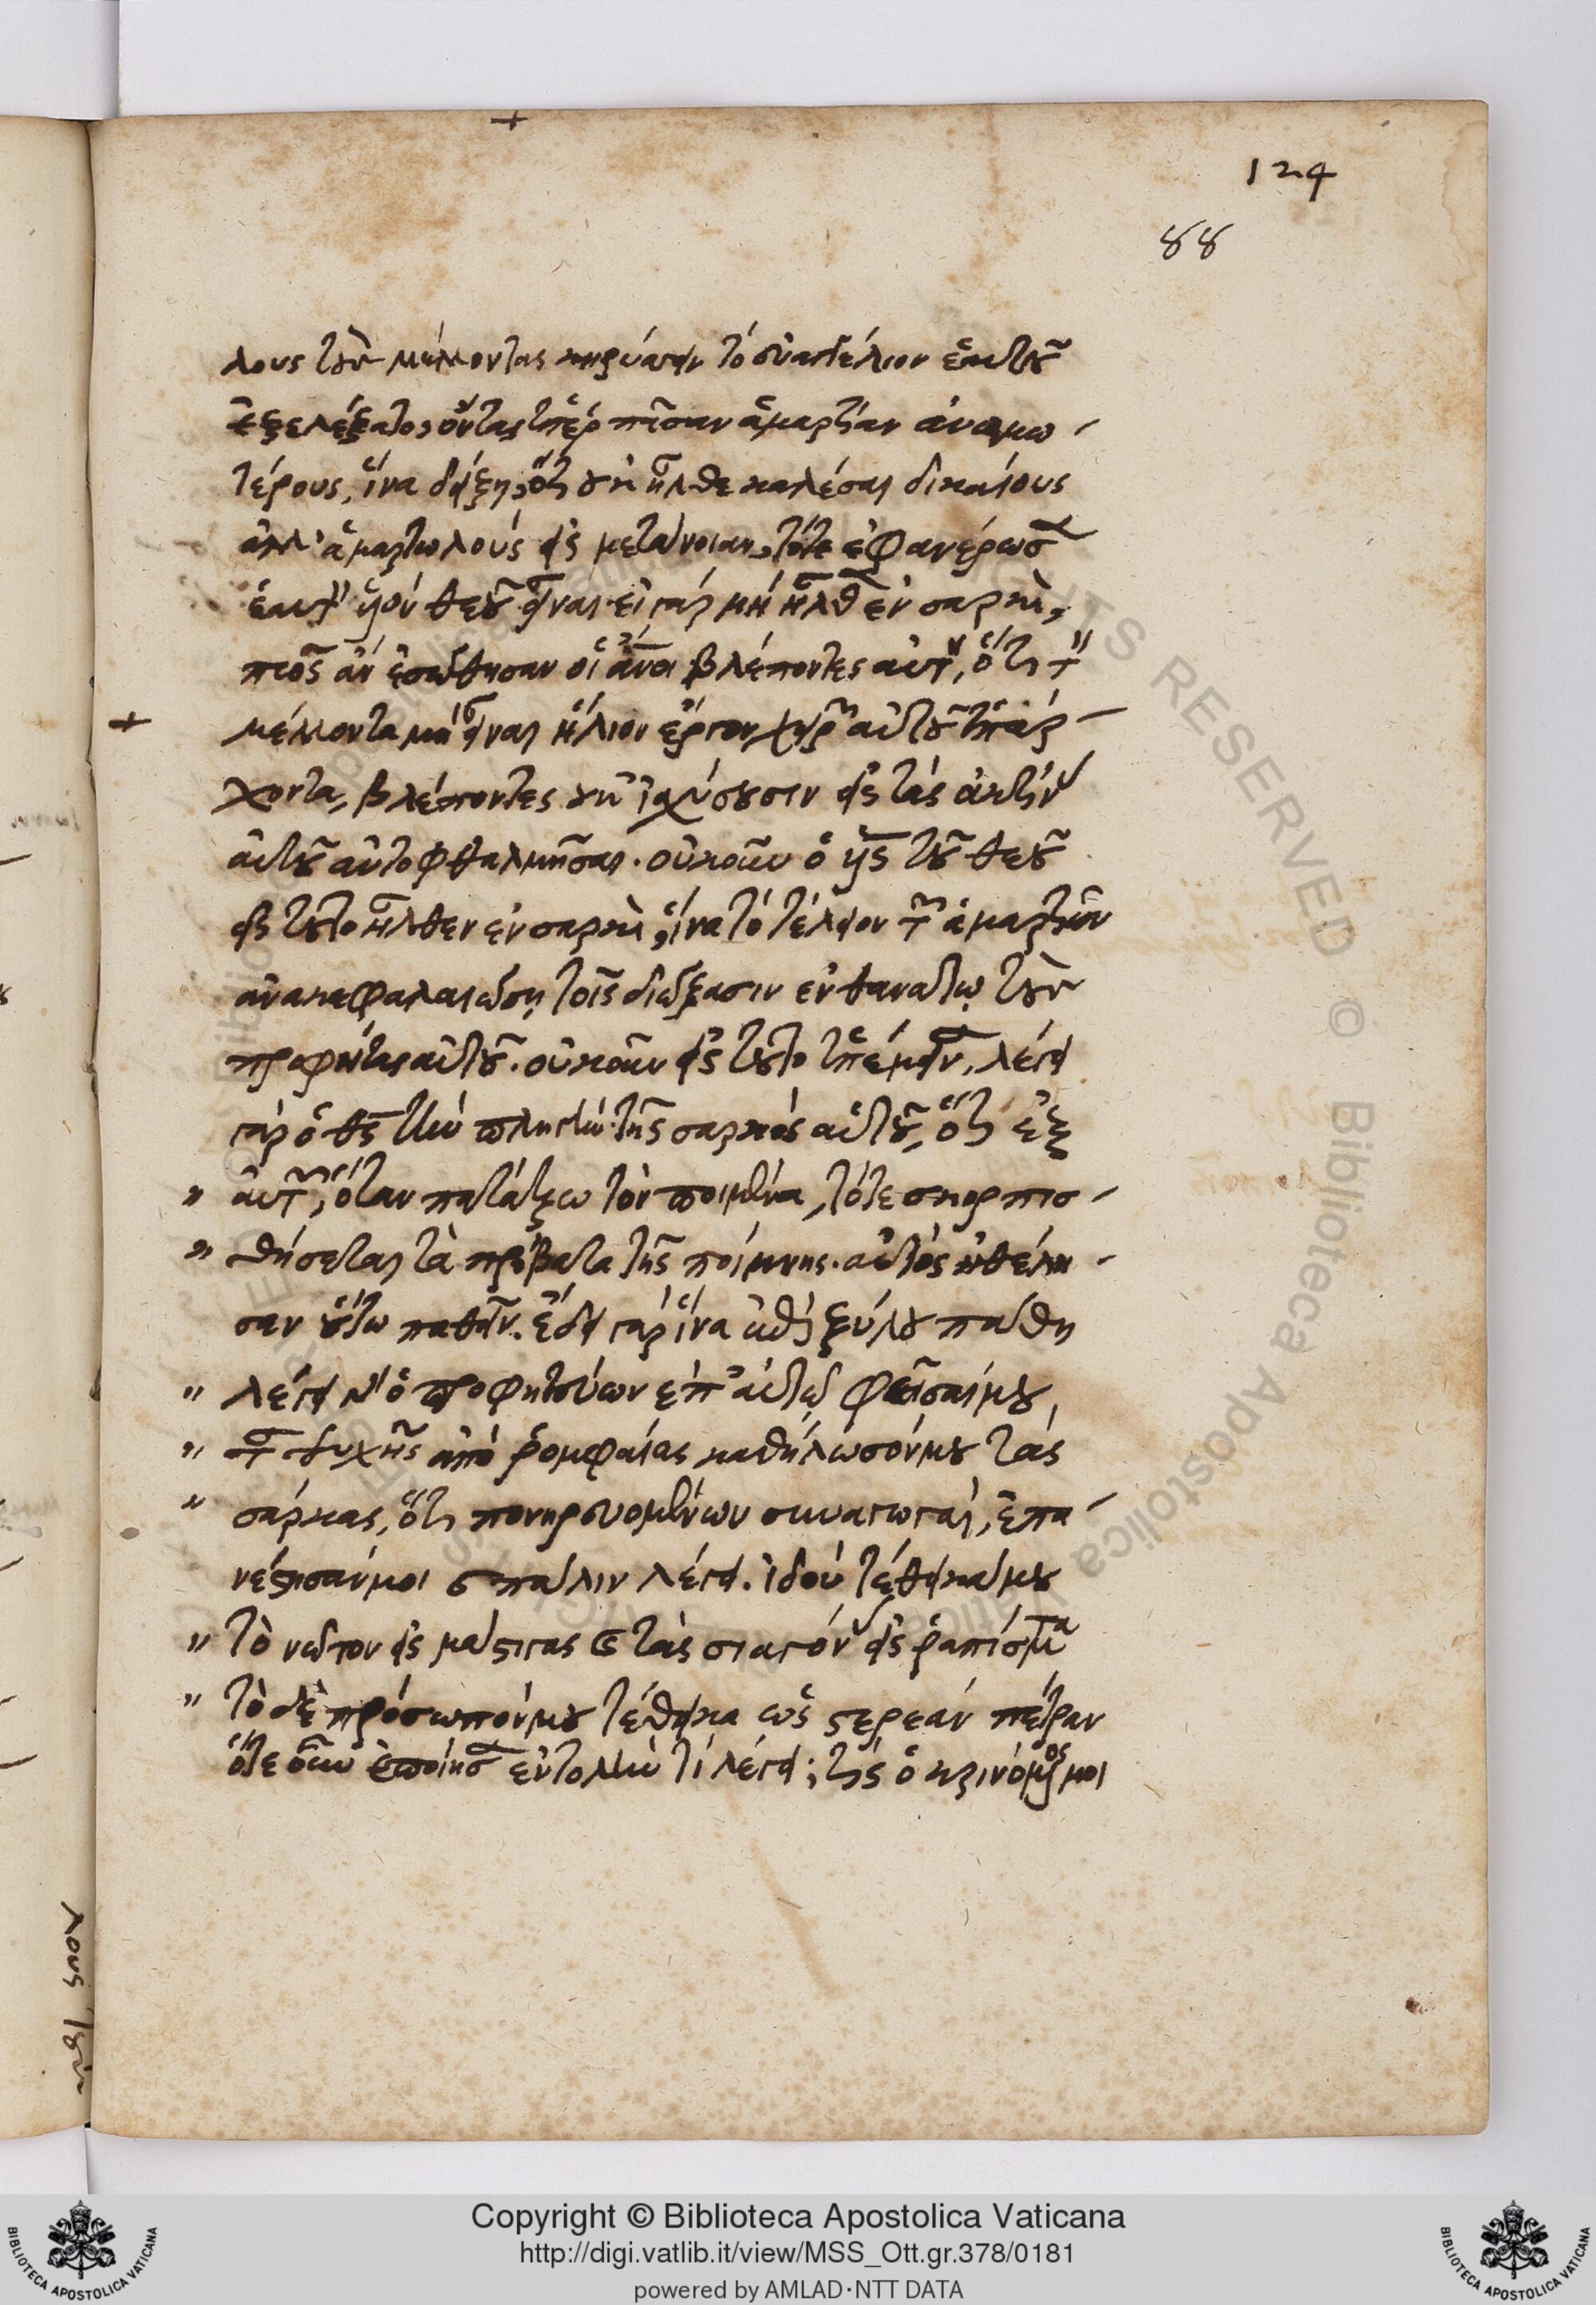 124
88
λους τοὺς μέλλοντας κηρύσσειν τὸ εὐαγγέλιον ἑαυτοῦ
ἐξελέξατο, ὄντας ὑπὲρ πᾶσαν ἁμαρτίαν ἀνομω-
τέρους, ἵνα δείξῃ, ὅτι οὐκ ἦλθε καλέσαι δικαίους
ἀλλ' ἁμαρτωλοὺς εἰς μετάνοιαν, τότε ἐφανέρωσ
ἑαυτὸν υἱὸν θεοῦ εἶναι εἰ γὰρ μὴ ἦλθεν ἐν σαρκὶ,
πῶς ἂν ἐσώθησαν οἱ ἄνοι βλέποντες αὐτὸν, ὅτι τὸν
μέλλοντα μὴ εἶναι ἥλιον ἔργον χειρῶν αὐτοῦ ὑπάρ-
χοντα, βλέποντες οὐκ ἰσχύσουσιν εἰς τὰς ἀκτῖνας
αὐτοῦ ἀντοφθαλμῆσαι. οὐκοῦν ὁ υς τοῦ θεοῦ
εἰς τοῦτο ἦλθεν ἐν σαρκὶ, ἵνα τὸ τέλειον τῶν ἁμαρτιῶν
ἀνακεφαλαιώσῃ τοῖς διώξασιν ἐν θανάτῳ τοὺς
προφήτας αὐτοῦ. οὐκοῦν εἰς τοῦτο ὑπέμειν, λέγει
γὰρ ὁ θς τὴν πληγὴν τῆς σαρκὸς αὐτοῦ, ὅτι ἐξ
" αὐτῶν, ὅταν πατάξω τὸν ποιμένα, τότε σκορπισ-
" θήσεται τὰ πρόβατα τῆς ποίμνης. αὐτὸς ἠθέλη-
σεν οὕτω παθεῖν. ἔδει γὰρ ἵνα ἐπὶ ξύλου πάθῃ
" λέγει γὰρ ὁ προφητεύων ἐπ' αὐτῷ φεῖσαί μου
" τῆς ψυχῆς ἀπὸ ῥομφαίας καθήλωσόν μου τὰς
" σάρκας, ὅτι πονηρευομένων συναγωγαὶ, ἐπα-
νέστησάν μοι καὶ πάλιν λέγει. ἰδοὺ τέθεικά μου
" τὸ νῶτον εἰς μάστιγας καὶ τὰς σιαγόνας εἰς ῥαπίσματα
" τὸ δὲ πρόσωπόν μου τέθεικα ὡς στερεὰν πέτραν
ὅτε οὖν ἐποίησ ἐντολὴν τί λέγει; τίς ὁ κρινόμενός μοι
λους τοὺς
Copyright © Biblioteca Apostolica Vaticana
http://digi.vatlib.it/view/MSS_Ott.gr.378/0181
powered by AMLAD·NTT DATA